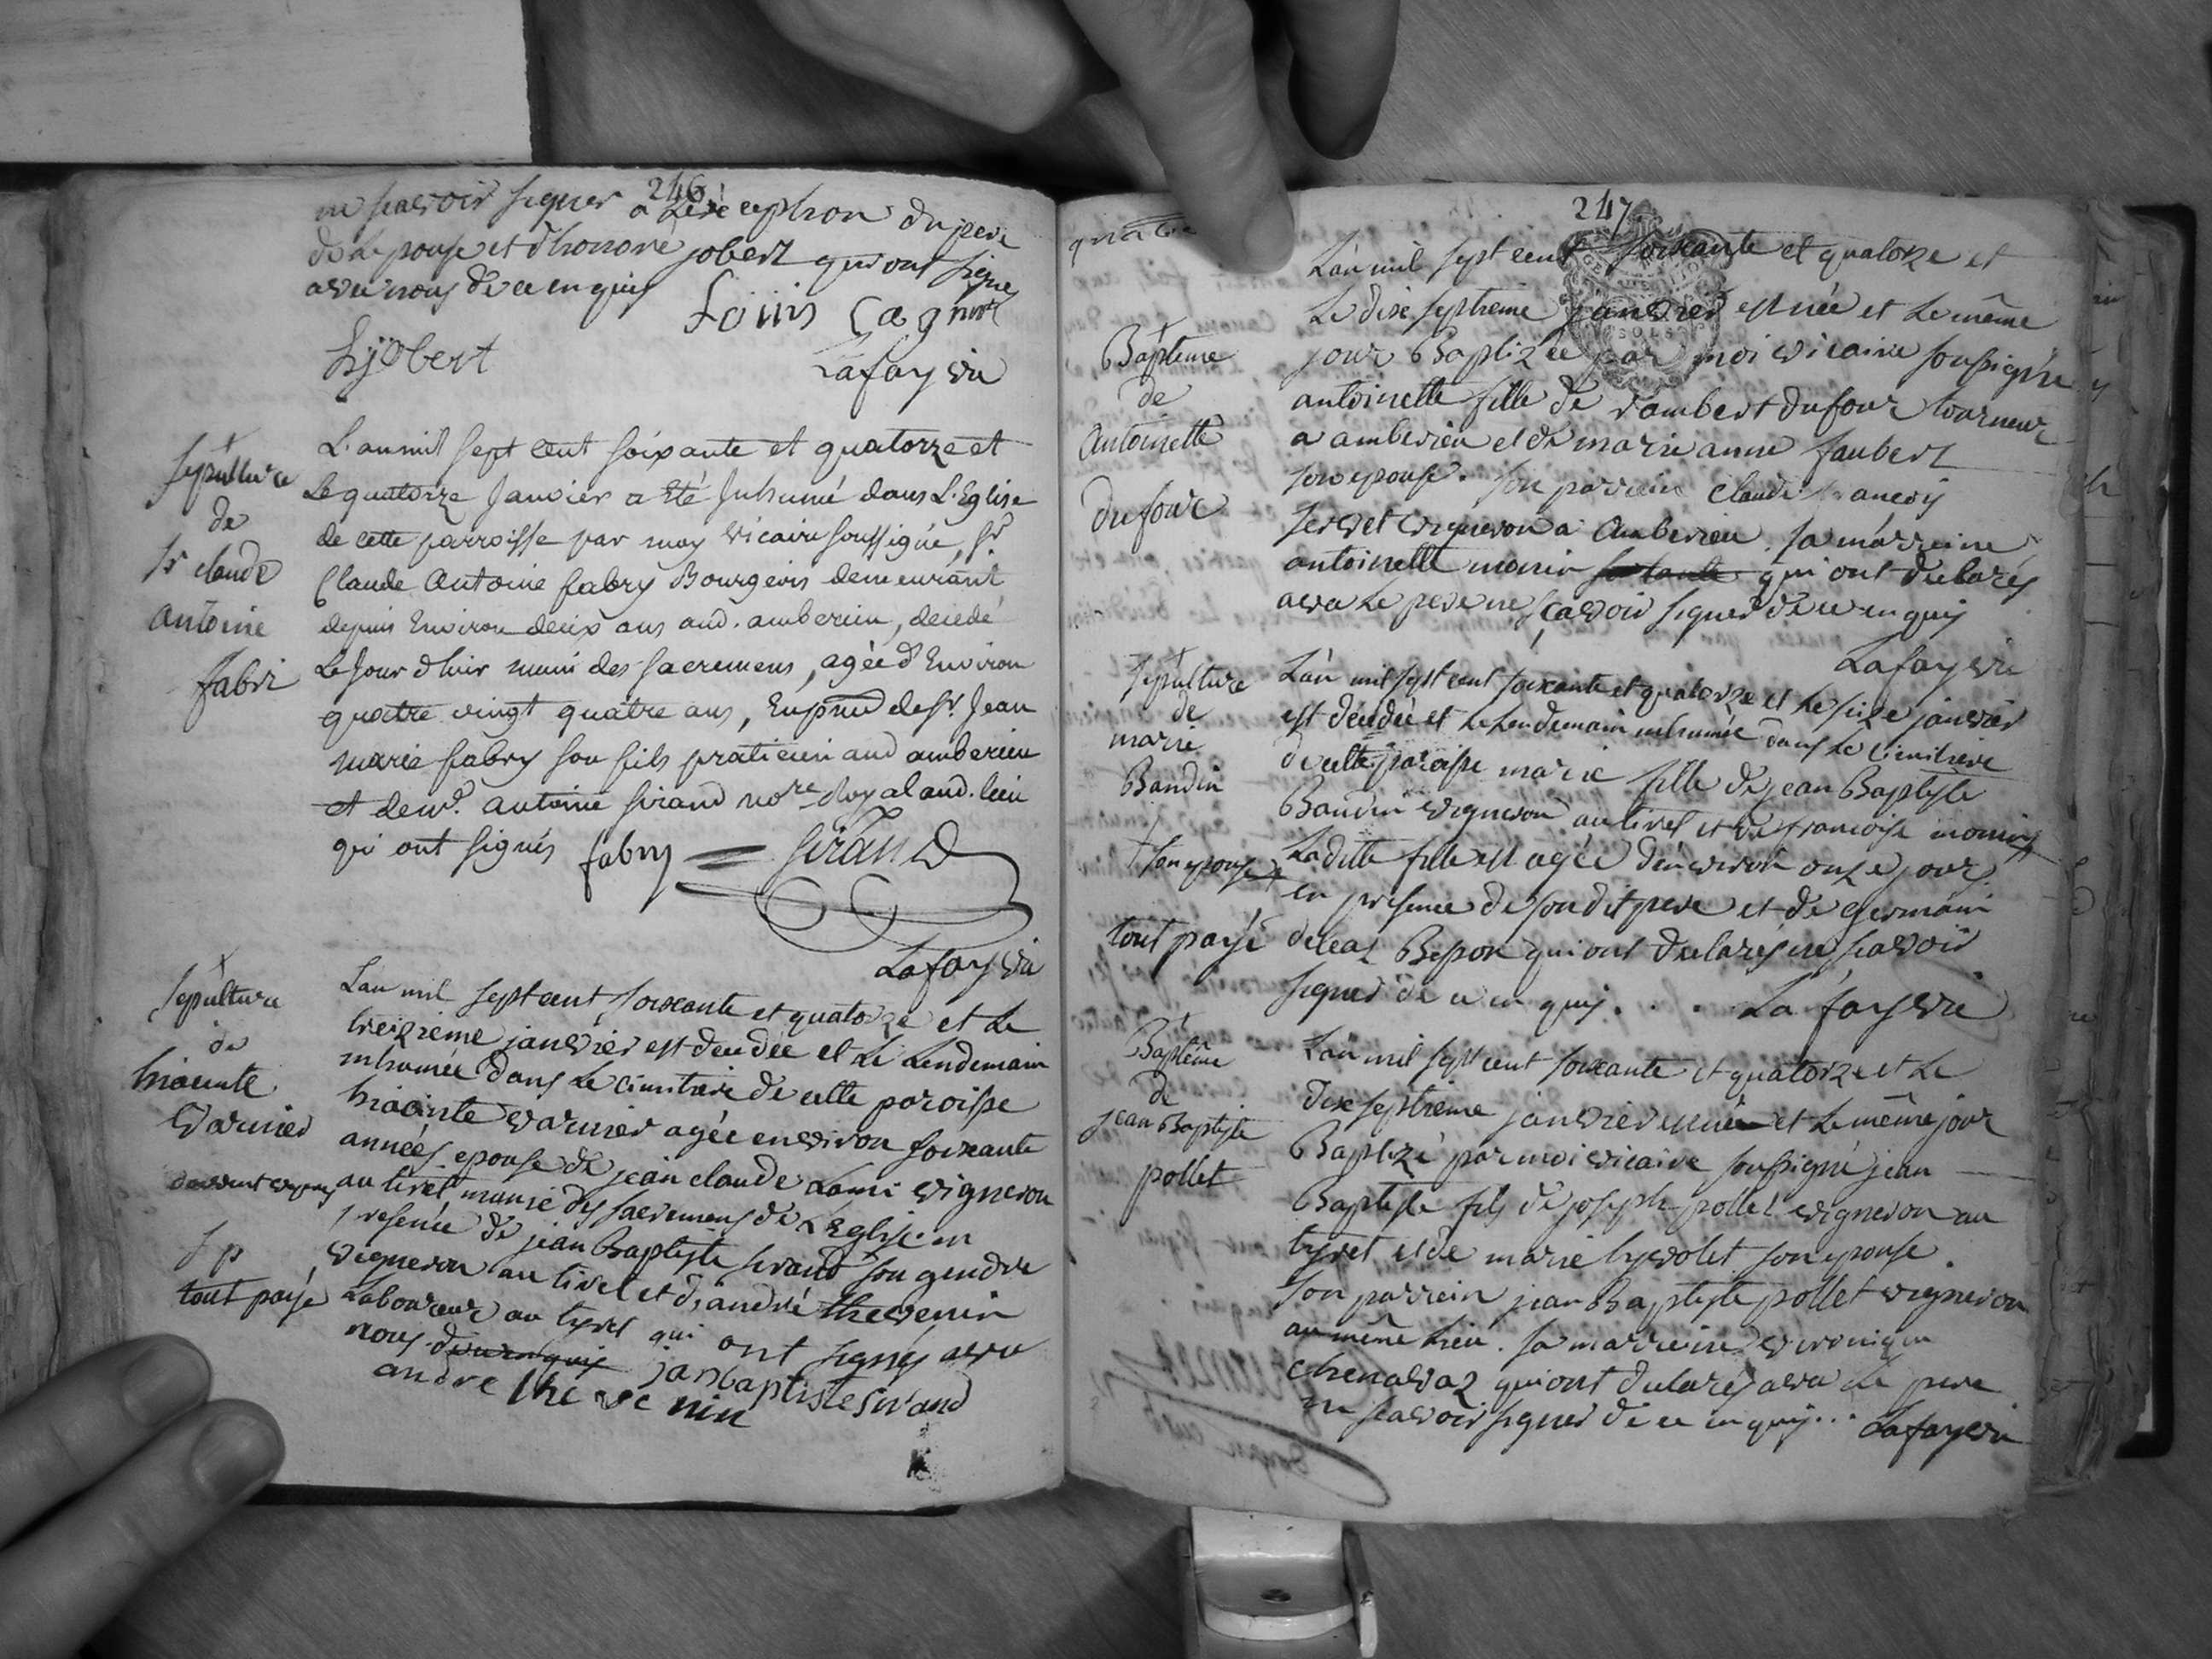 246
ne scavoir signer a L'exception du pere
de L'epouse et d'honoré jobert qui ont signé
avec nous de ce enquis
Louis Cagnin
hjobert
Lafay vic
Sepulture
de
Sr claude
Antoine
fabri
L'an mil sept cent soixante et quatorze et
Le quatorze Janvier a Eté Inhumé dans L'Eglise
de cette parroisse par moy vicaire soussigné, Sr.
Claude Antoine fabry Bourgeois demeurant
depuis Environ deux ans aud. amberieu, decedé
Le Jour d'hier muni des sacremens, agée d'Environ
quatre vingt quatre ans, En pnce de sr. Jean
marie fabry son fils praticien aud amberieu
et de me. antoine sirand nore Royal aud. lieu
qui ont signés
fabry
Sirand
Lafay vic
Sepulture
de
hiacinte
Warnier
Sp
tout payé
L'an mil sept cent soixante et quatorze et Le
treizième janvier est decedée et Le Lendemain
inhumée dans Le cimitiere de cette paroisse
hiacinte Warnier agée environ soixante
années epouse de jean claude Lami vigneron
au tiret munie des sacremens de L'Eglise. en
presence de jean Baptiste sirand son gendre
vigneron au tiret et d'andré thevenin
Laboureur au tyret qui ont signés avec
nous de ce enquis
janbaptiste Sirand
andre thevenin
247
quatre
Baptême
de
Antoinette
Dufour
L'an mil sept cent soixante et quatorze et
Le dix septieme janvier est née et Le même
jour Baptizée par moi vicaire soussigné
antoinette fille de rambert dufour tourneur
a amberieu et de marie anne faubert
son epouse. son parrein claude francois
servet vigneron a Amberieu. sa márreine
antoinette monin sa tante qui ont declarés
avec Le pere ne sçavoir signer de ce enquis
Lafay vic
Sepulture
de
marie
Baudin
L'an mil sept cent soixante et quatorze et Le seize janvier
est decedée et Le Lendemain inhumée dans Le Cimitiere
de cette paroisse marie fille de jean Baptiste
Baudin vigneron au tiret et de francoise monin
+ son epouse +
Ladite fille est agée d'environ onze jours
en presence de sondit pere et de germain
tout payé
deleaz Besson qui ont declarés ne scavoir
signer de ce en quis. . . . La fay vic
Baptême
de
jean Baptiste
pollet
L'an mil sept cent soixante et quatorze et Le
dix septieme janvier est né et Le même jour
Baptizé par moi vicaire soussigné jean
Baptiste fils de joseph pollet vigneron au
tyret, et de marie hyvolet son epouse.
Son parrein jean Baptiste pollet vigneron
au même Lieu. sa marreine veronique
chenavaz qui ont declarés avec Le pere
ne scavoir signer de ce en quis... Lafay vic